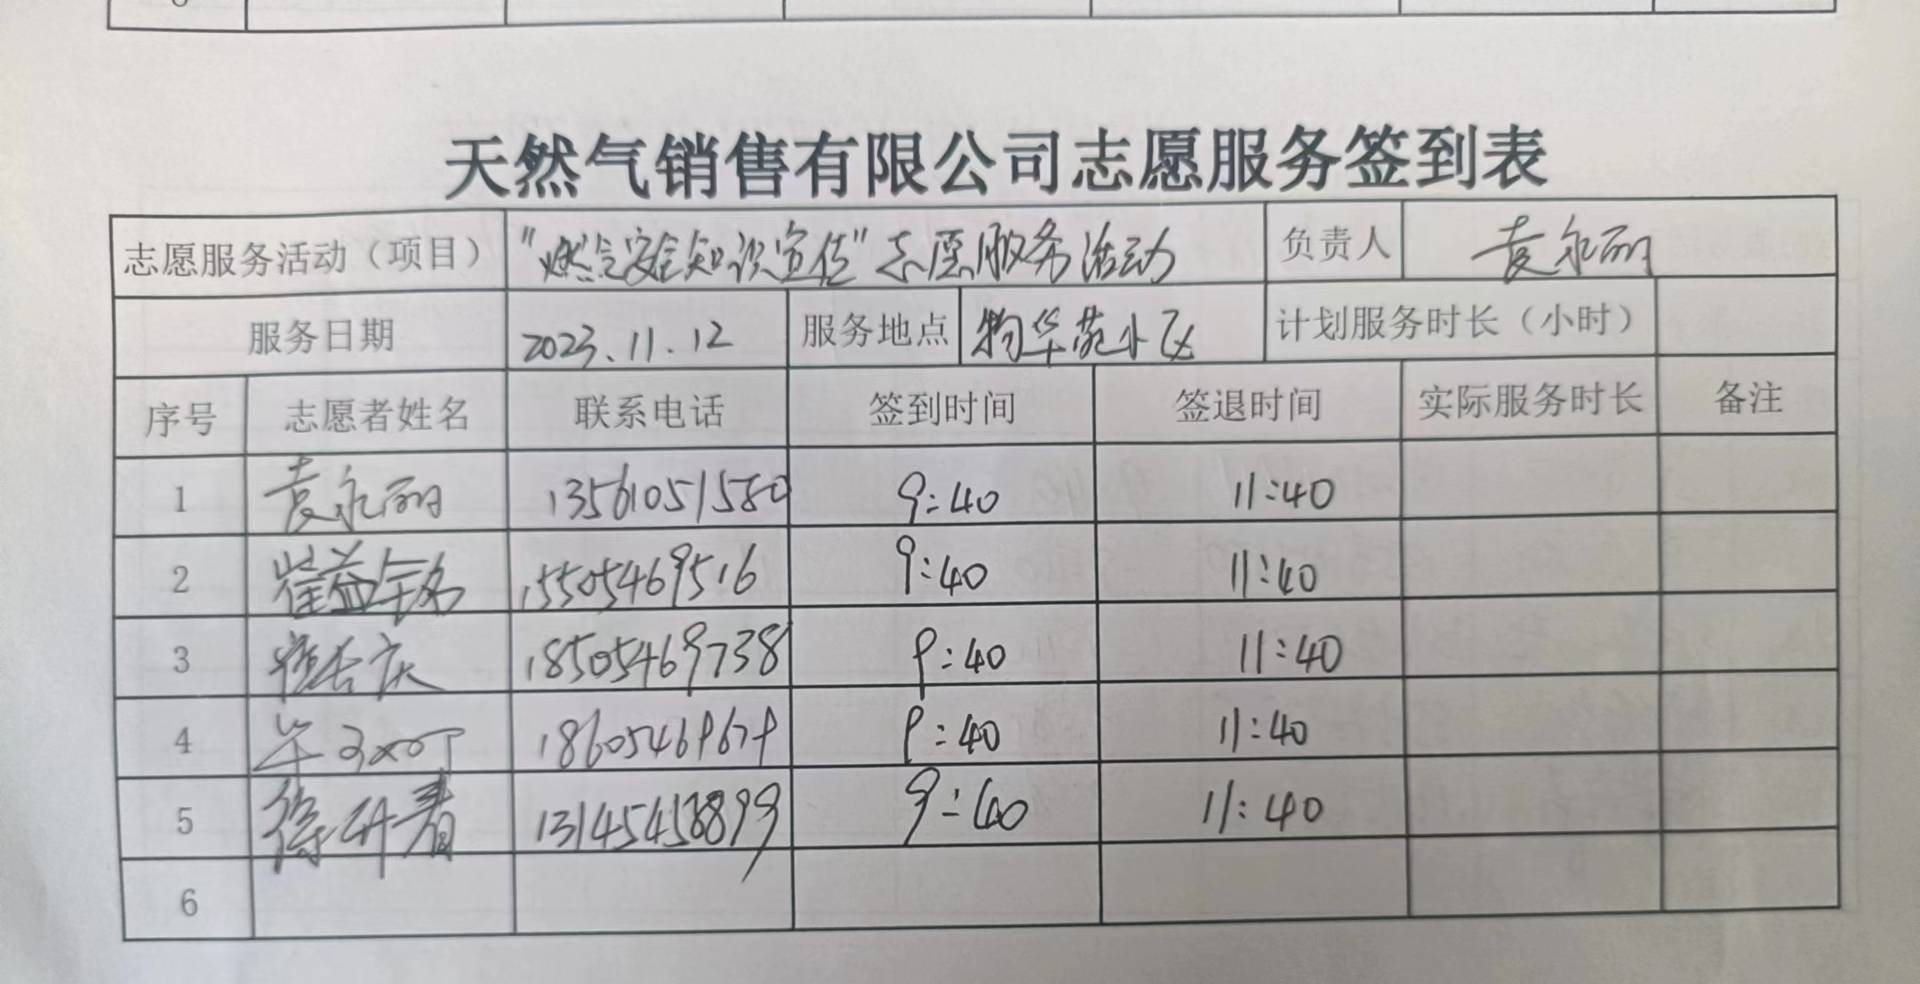 天然气销售有限公司志愿服务签到表
志愿服务活动（项目） “燃气安全知识宣传”志愿服务活动 负责人 袁永丽
服务日期 2023.11.12 服务地点 物华苑小区 计划服务时长（小时）
序号 志愿者姓名 联系电话 签到时间 签退时间 实际服务时长 备注
1 袁永丽 13561051580 9:40 11:40
2 崔益铭 15505469516 9:40 11:40
3 18505469738 9:40 11:40
4 18605469679 9:40 11:40
5 13145458899 9:40 11:40
6